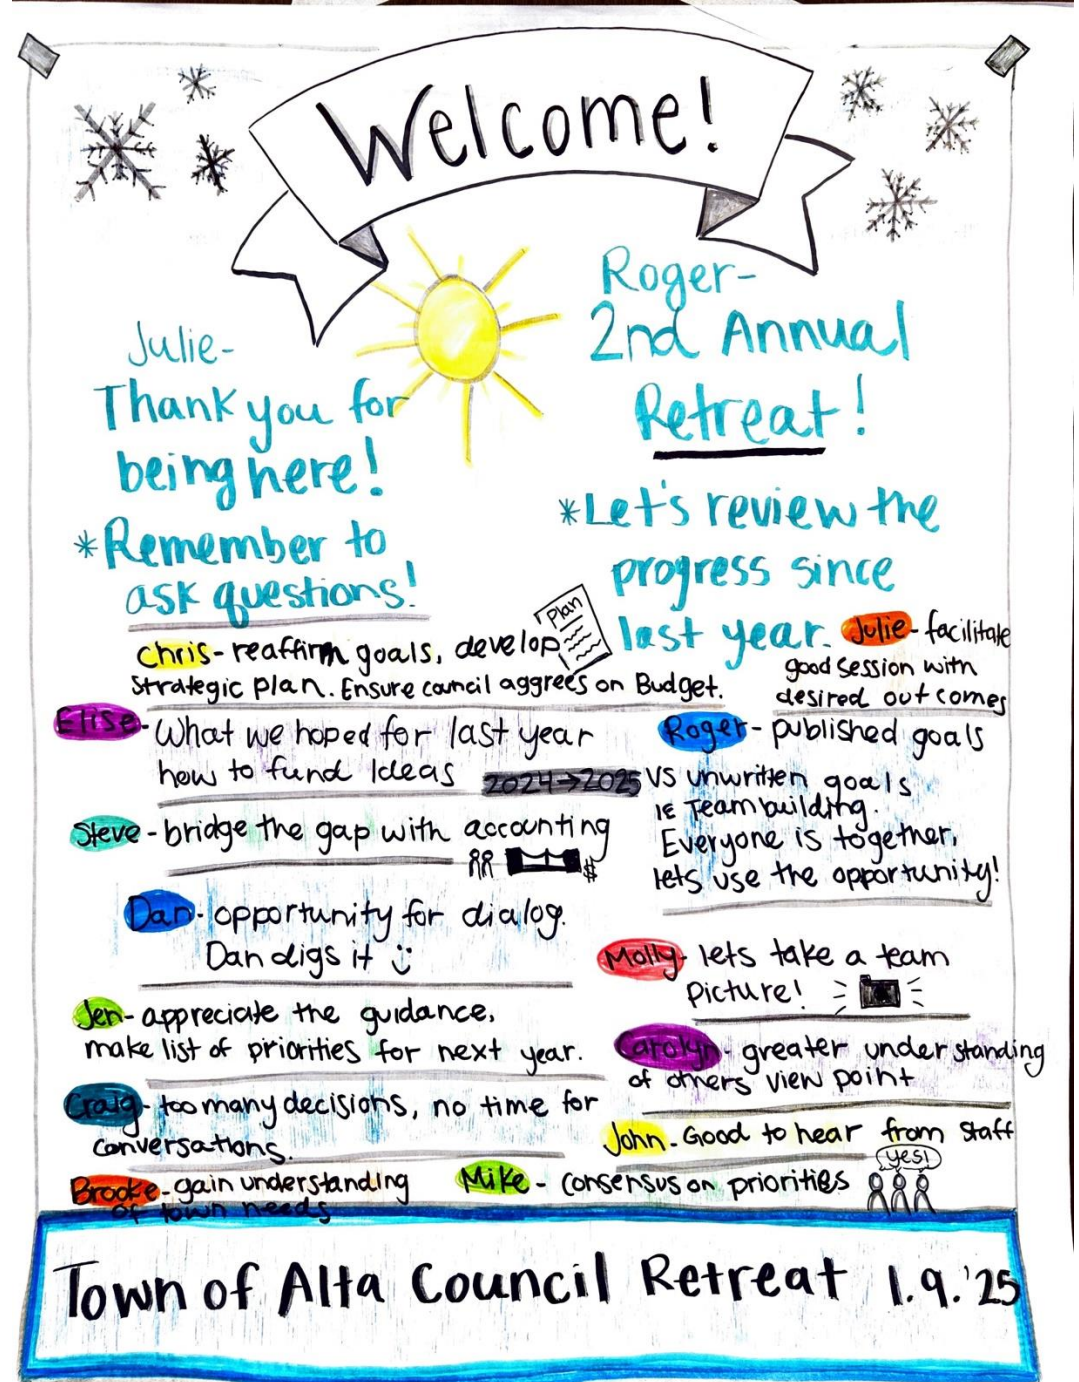 Welcome!
Julie-
Thank you for
being here!
*Remember to
ask questions!
Roger-
2nd Annual
Retreat!
*Let's review the
progress since
last year.
Plan
Chris- reaffirm goals, develop
strategic plan. Ensure council aggrees on Budget.
Julie- facilitate
good session with
desired outcomes
Elise- What we hoped for last year
how to fund Ideas
2024→2025
Roger- published goals
VS unwritten goals
IE Team building.
Everyone is together,
lets use the opportunity!
Steve- bridge the gap with accounting
$
Dan- opportunity for dialog.
Dan digs it
Molly- lets take a team
picture!
Jen- appreciate the guidance,
make list of priorities for next year.
Carolyn- greater understanding
of others view point
Craig- too many decisions, no time for
conversations.
John- Good to hear from staff
yes!
Brooke- gain understanding
of town needs
Mike- consensus on priorities
Town of Alta Council Retreat 1.9.'25